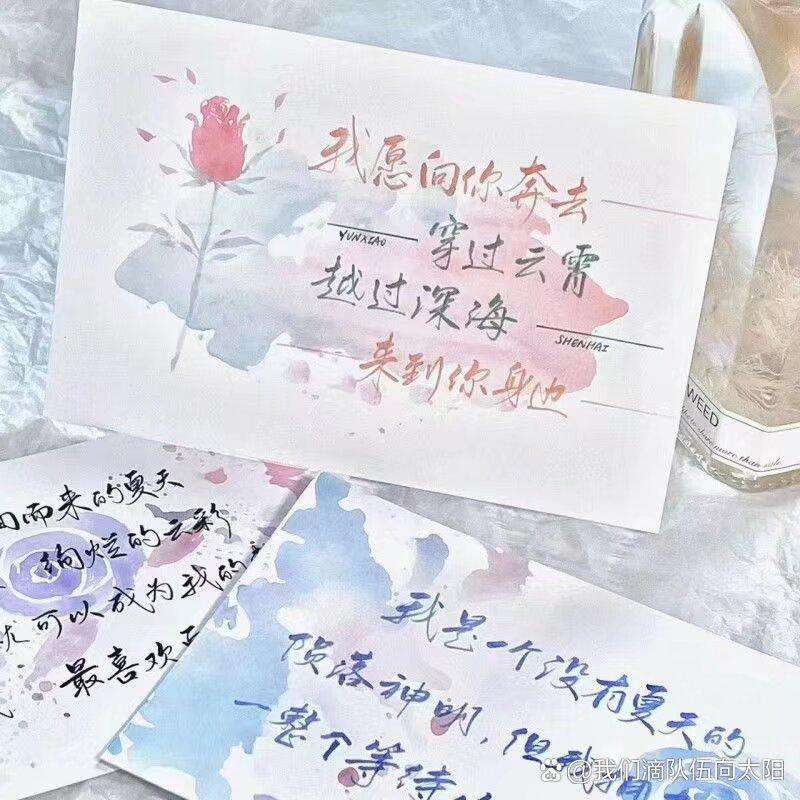 我愿向你奔去
YUNXIAO
穿过云霄
越过深海
SHENHAI
来到你身边
WEED
more than
而来的夏天
绚烂的云彩
可以成为我的
最喜欢
我是一个没有夏天的
陨落神明,但我
一整个等待
我们滴队伍向太阳